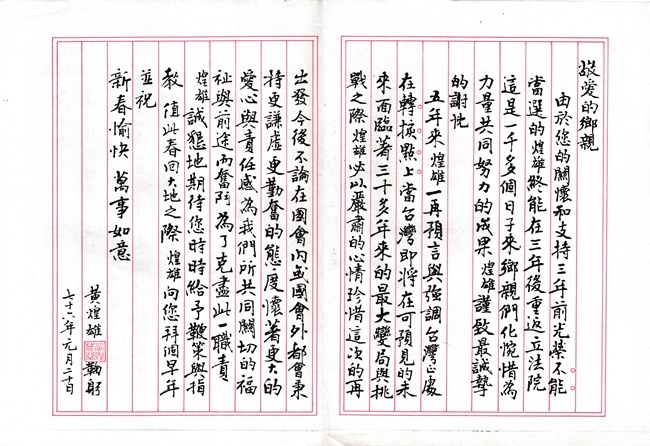 敬愛的鄉親
由於您的關懷和支持三年前光榮不能
當選的煌雄終能在三年後重返立法院
這是一千多個日子來鄉親們化惋惜為
力量共同努力的成果煌雄謹致最誠摯
的謝忱
五年來煌雄一再預言與強調台灣正處
在轉捩點上當台灣即將在可預見的未
來面臨著三十多年來的最大變局與挑
戰之際煌雄必以嚴肅的心情珍惜這次的再
出發今後不論在國會內或國會外都會秉
持更謙虛更勤奮的態度懷著更大的
愛心與責任感為我們所共同關切的福
祉與前途而奮鬥為了克盡此一職責
煌雄誠懇地期待您時時給予鞭策與指
教值此春回大地之際煌雄向您拜個早年
並祝
新春愉快萬事如意
黃煌雄鞠躬
七十六年元月二十日